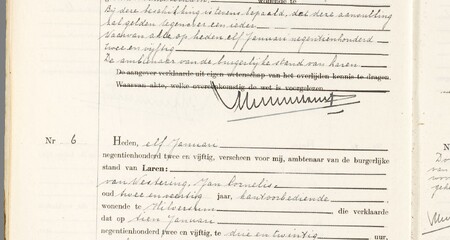 wonende te
Bij deze beschikking is tevens bepaald, dat deze aanvulling
zal gelden tegenover een ieder.
Waarvan akte op heden elf Januari negentienhonderd
twee en vijftig.
De ambtenaar van de burgerlijke stand van Laren.
De aangever verklaarde uit eigen wetenschap van het overlijden kennis te dragen.
Waarvan akte, welke overeenkomstig de wet is voorgelezen.
Nr 6
Heden, elf Januari
negentienhonderd twee en vijftig, verscheen voor mij, ambtenaar van de burgerlijke
stand van Laren:
van Westering, Jan Cornelis
oud twee en dertig jaar, kantoorbediende
wonende te Hilversum , die verklaarde
dat op tien Januari
negentienhonderd twee en vijftig, te drie en twintig uur,